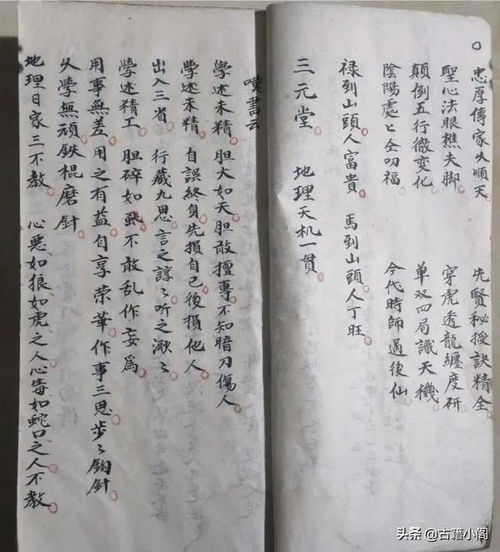 忠厚傳家大順天 先賢秘授訣精全
聖心法眼樵夫脚 穿虎透龍纏度研
顛倒五行微變化 單双四局識天機
陰陽處々全叨福 今代時師過後仙
禄到山頭人富貴 馬到山頭人丁旺
三元堂 地理天机一貫
嘆書云
學述未精 胆大如天胆敢擅專不知暗刀傷人
學述未精 自誤終身先損自己後損他人
出入三省 行藏九思 言之諄々听之漱々
學述精工 胆碎如䑕不敢乱作妄爲
用事無差 用之有益自享荣華作事三思步々鈎針
久學無頑鉄棍磨針
地理日家三不教 心惡如狼如虎之人心毒如蛇口之人不教
头条 @古籍小阁